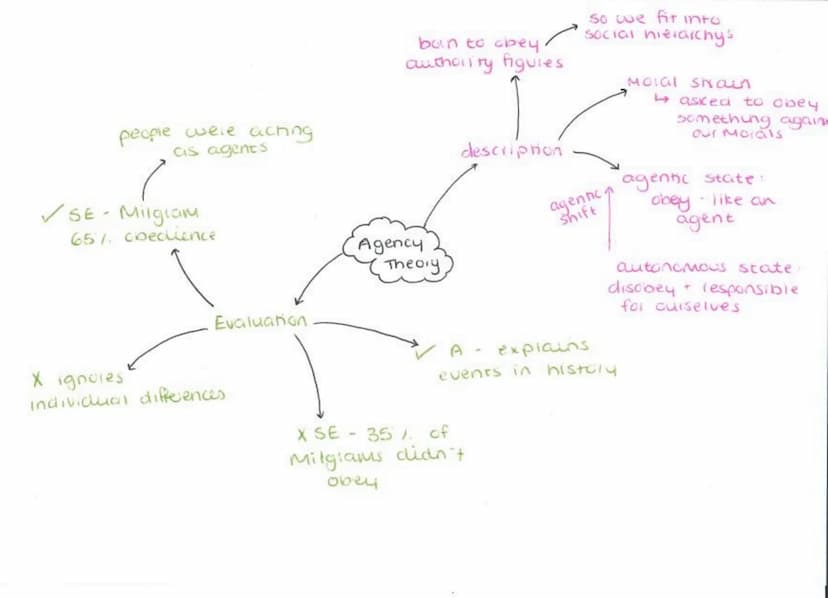 Agency
Theory
description
born to obey
authority figures
so we fit into
social hierarchys
Moral strain
↳ asked to obey
something again
our morals
agentic state:
obey - like an
agent
agentic
shift
autonomous state:
disobey + responsible
for ourselves
Evaluation
✓ SE - Milgram
65% obedience
people were acting
as agents
X ignores
individual differences
X SE - 35% of
Milgrams didn't
obey
✓ A - explains
events in history